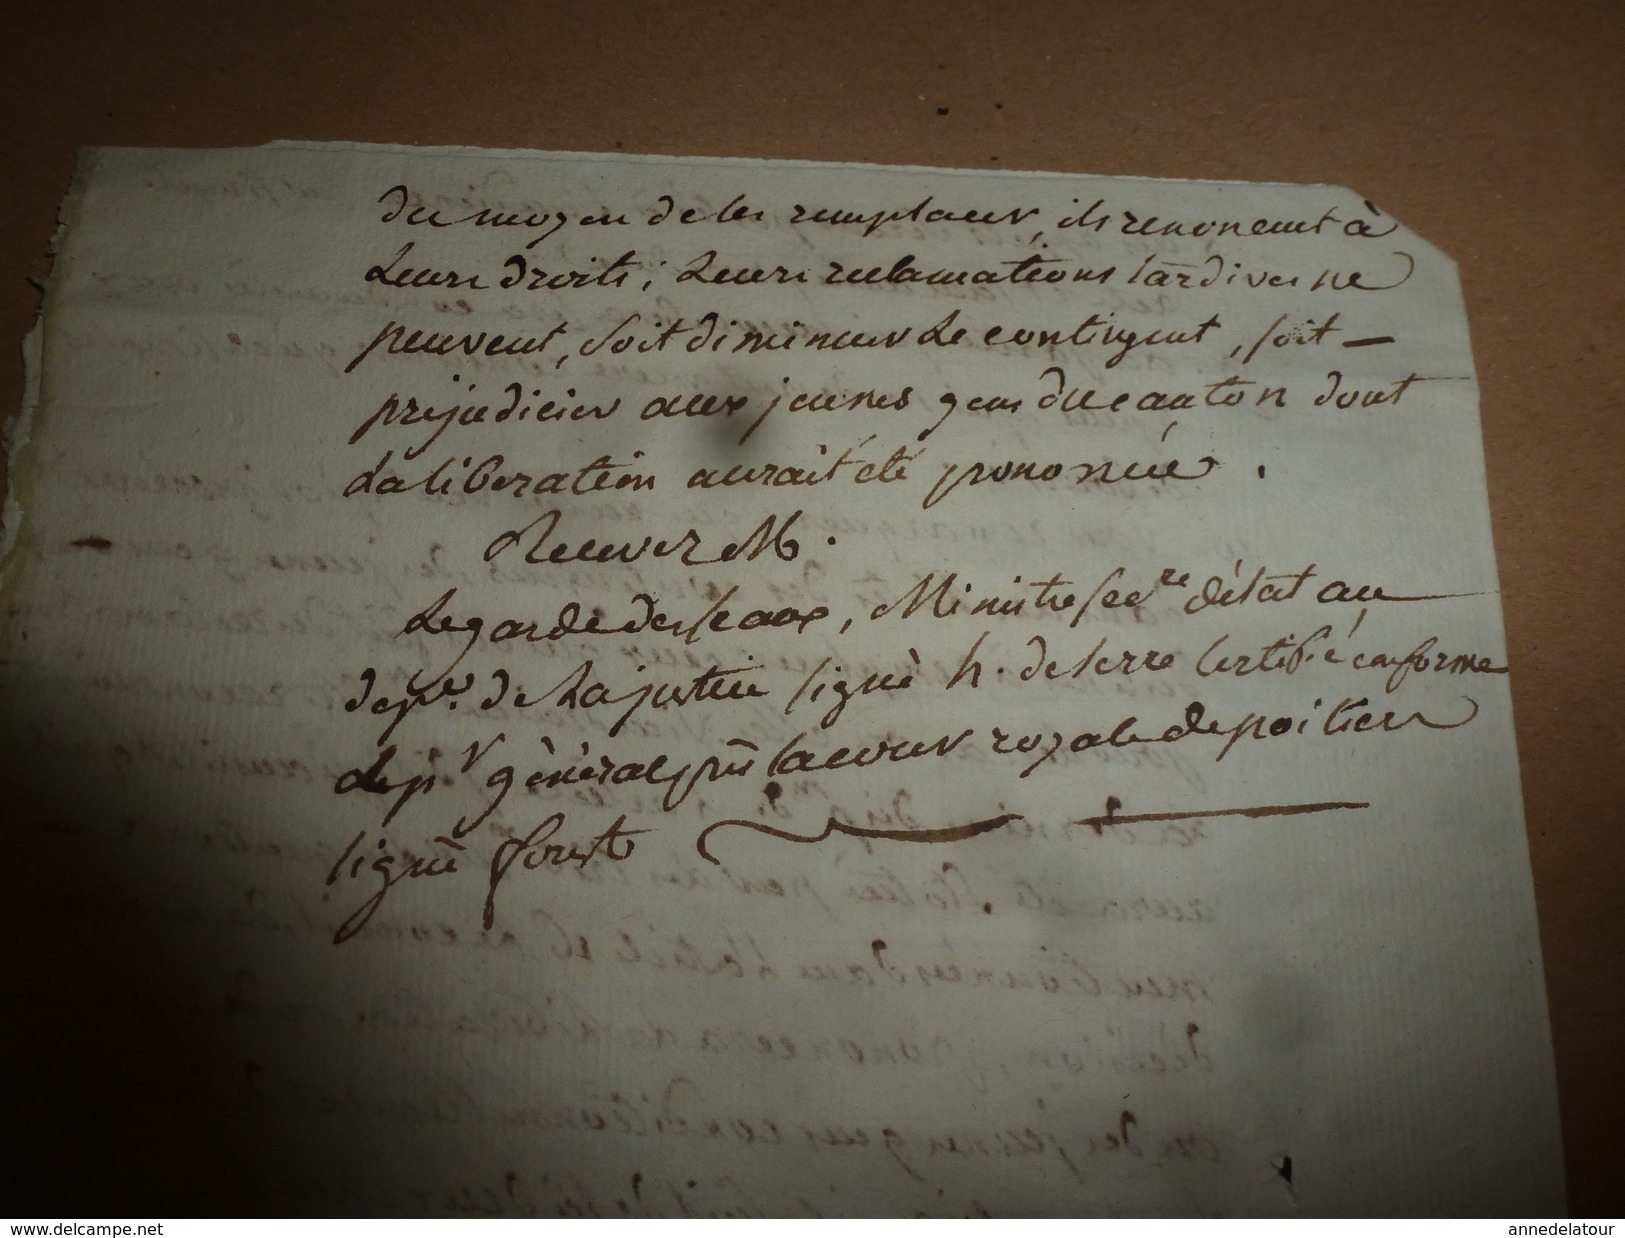 du moyen de les remplacer, ils renoncent à
Leurs droits; Leurs reclamations tardives ne
peuvent, soit diminuer Le contingent, soit —
préjudicier aux jeunes gens du canton dont
La liberation aurait été prononcée.
Recevez M.
Le garde des sceaux, Ministre Secre d'état au
depu. de La justice signé h. de serre Certifié conforme
Le pr général près la cour royale de poitiers
signé
www.delcampe.net
annedelatour